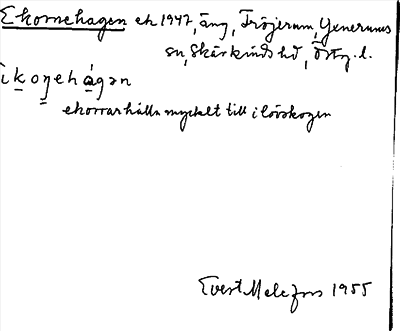 Ekornehagen ek 1947, äng, Tröjerum, Yxnerums
sn, Skärkinds hd, Östg. l.
ekorrar hålla mycket till i lövskogen
Evert Melefors 1955